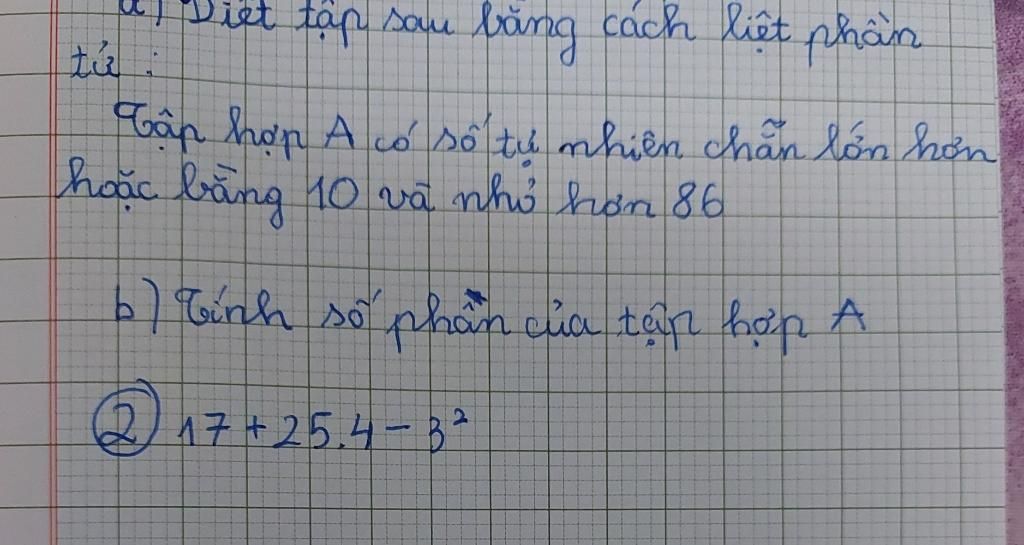 a) Viết tập sau bằng cách liệt phần
tử :
Tập hợp A có số tự nhiên chẵn lớn hơn
hoặc bằng 10 và nhỏ hơn 86
b) Tính số phần của tập hợp A
② 17 + 25.4 - 3²